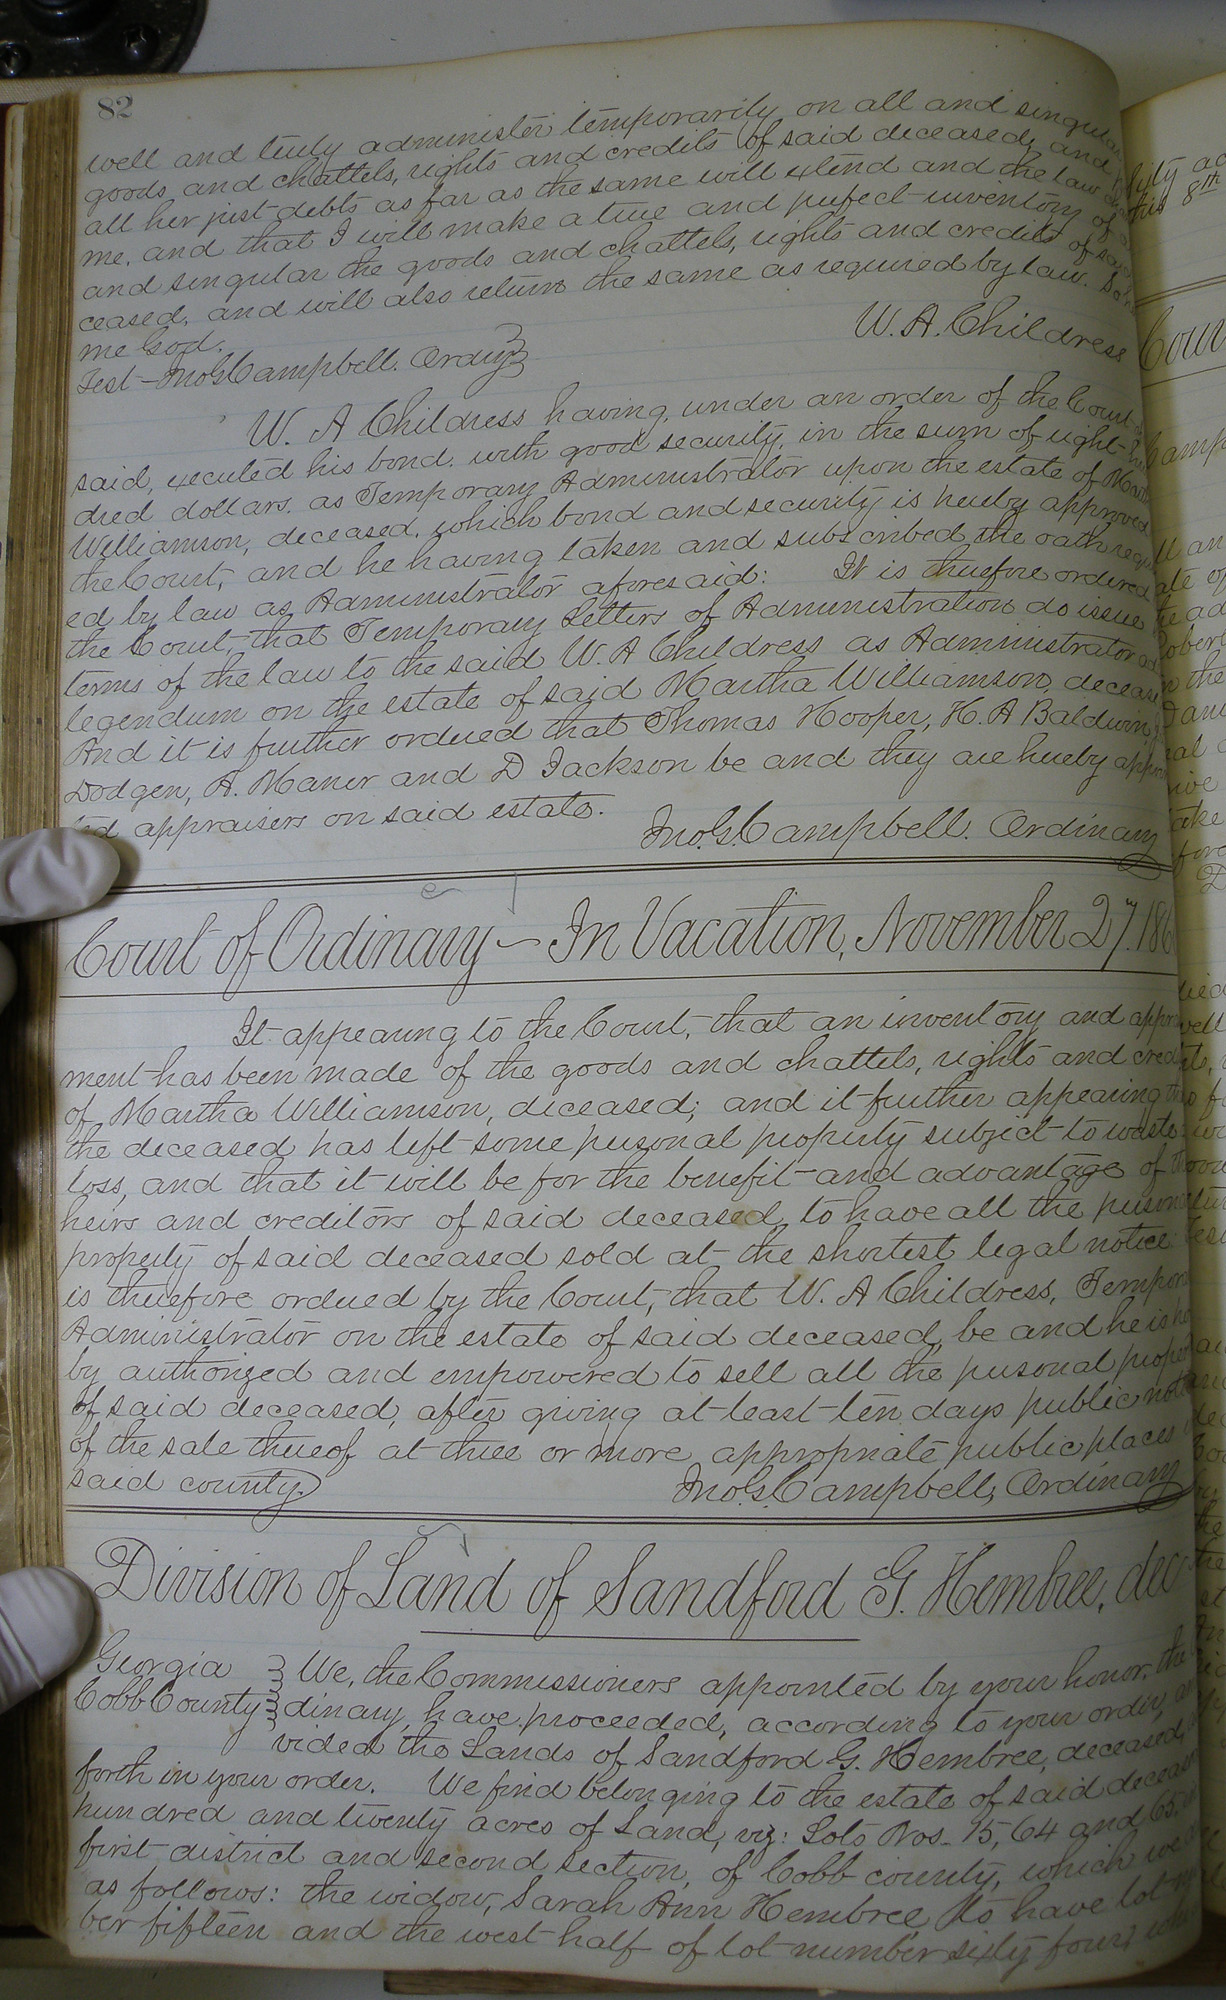 82
well and truly administer temporarily on all and singular
goods and chattels, rights and credits of said deceased, and
all her just debts as far as the same will extend and the law
me, and that I will make a true and perfect inventory of
and singular the goods and chattels, rights and credits of said
ceased, and will also return the same as required by law. So
me God.
W. A. Childress
Test - Jno. G. Campbell. Ordry
W. A Childress having, under an order of the Court
said, executed his bond, with good security, in the sum of eight
dred dollars, as Temporary Administrator upon the estate of Martha
Williamson, deceased, which bond and security is hereby approved
the Court, and he having taken and subscribed the oath
ed by law as Administrator aforesaid: It is therefore ordered
the Court, that Temporary Letters of Administration do issue
terms of the law to the said W. A Childress as Administrator ad
legendum on the estate of said Martha Williamson, deceased
And it is further ordered that Thomas Hooper, H. A Baldwin,
Dodgen, A. Maner and D Jackson be and they are hereby
ted appraisers on said estate.
Jno. G. Campbell. Ordinary
Court of Ordinary - In Vacation, November 27. 186
It appearing to the Court, that an inventory and
ment has been made of the goods and chattels, rights and
of Martha Williamson, deceased; and it further appearing
the deceased has left some personal property subject to waste
loss, and that it will be for the benefit and advantage of the
heirs and creditors of said deceased, to have all the
property of said deceased sold at the shortest legal notice
is therefore ordered by the Court, that W. A Childress,
Administrator on the estate of said deceased, be and he is
by authorized and empowered to sell all the personal
of said deceased, after giving at least ten days public
of the sale thereof at three or more appropriate public places
said county.
Jno. G. Campbell, Ordinary
Division of Land of Sandford G. Hembree, dec
Georgia } We, the Commissioners appointed by your honor, the
Cobb County } dinary, have proceeded, according to your order,
vided the Lands of Sandford G. Hembree, deceased,
forth in your order. We find belonging to the estate of said
hundred and twenty acres of Land, viz: Lots Nos. 15, 64 and 65,
first district and second section, of Cobb county, which we
as follows: the widow, Sarah Ann Hembree to have lot
ber fifteen and the west half of lot number sixty four,